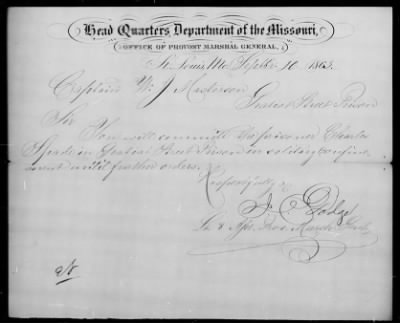 Head Quarters, Department of the Missouri,
OFFICE OF PROVOST MARSHAL GENERAL,
St. Louis, Mo. Septbr 10 1863.
Captain W. J. Masterson
Gratiot Street Prison
Sir
You will commit the prisoner Charles
in Gratiot Street Prison in solitary confine
ment until further orders.
Respectfully
Dodge
Lt &